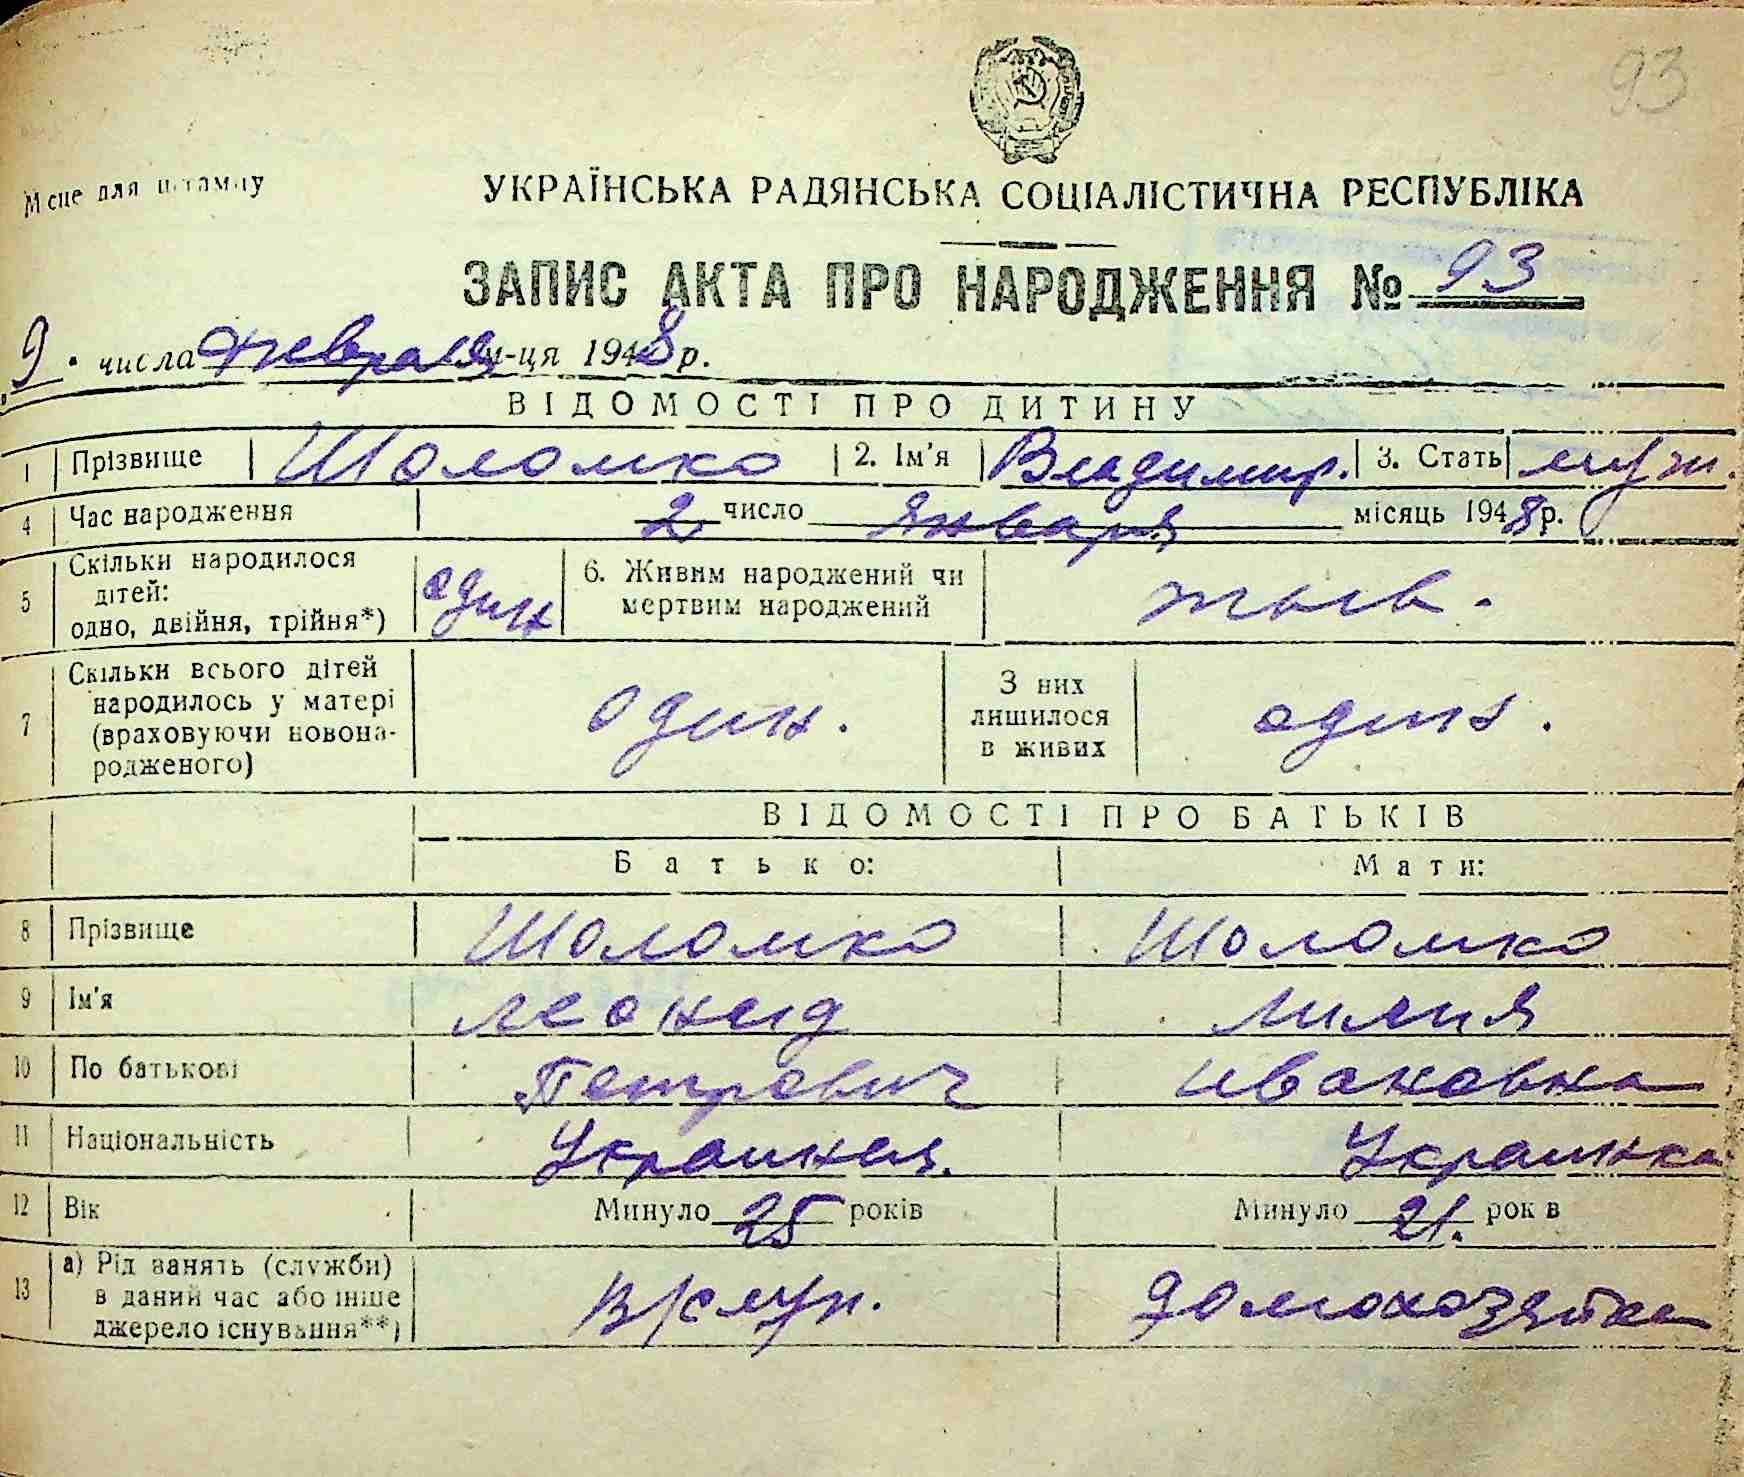 93
Місце для штампу
УКРАЇНСЬКА РАДЯНСЬКА СОЦІАЛІСТИЧНА РЕСПУБЛІКА
ЗАПИС АКТА ПРО НАРОДЖЕННЯ № 93
9 числа февраля м-ця 1948 р.
ВІДОМОСТІ ПРО ДИТИНУ
1 Прізвище Шоломко 2. Ім'я Владимир. 3. Стать муж.
4 Час народження 2 число января місяць 1948 р.
5 Скільки народилося дітей: одно, двійня, трійня*) один 6. Живим народжений чи мертвим народжений жыв.
7 Скільки всього дітей народилось у матері (враховуючи новонародженого) один. З них лишилося в живих один.
ВІДОМОСТІ ПРО БАТЬКІВ
Батько: Мати:
8 Прізвище Шоломко Шоломко
9 Ім'я Леонид Лилия
10 По батькові Петрович Ивановна
11 Національність Украинец. Украинка
12 Вік Минуло 25 років Минуло 21. років
13 а) Рід занять (служби) в даний час або інше джерело існування**) В/служ. Домохозяйка